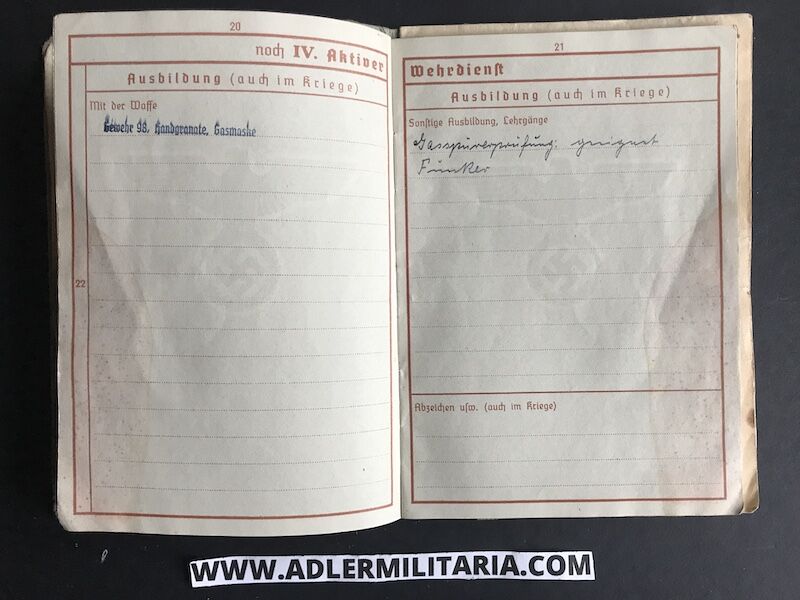 20
noch IV. Aktiver
Ausbildung (auch im Kriege)
Mit der Waffe
Gewehr 98, Handgranate, Gasmaske
22
21
Wehrdienst
Ausbildung (auch im Kriege)
Sonstige Ausbildung, Lehrgänge
Gasspürerprüfung: geeignet
Funker
Abzeichen usw. (auch im Kriege)
WWW.ADLERMILITARIA.COM